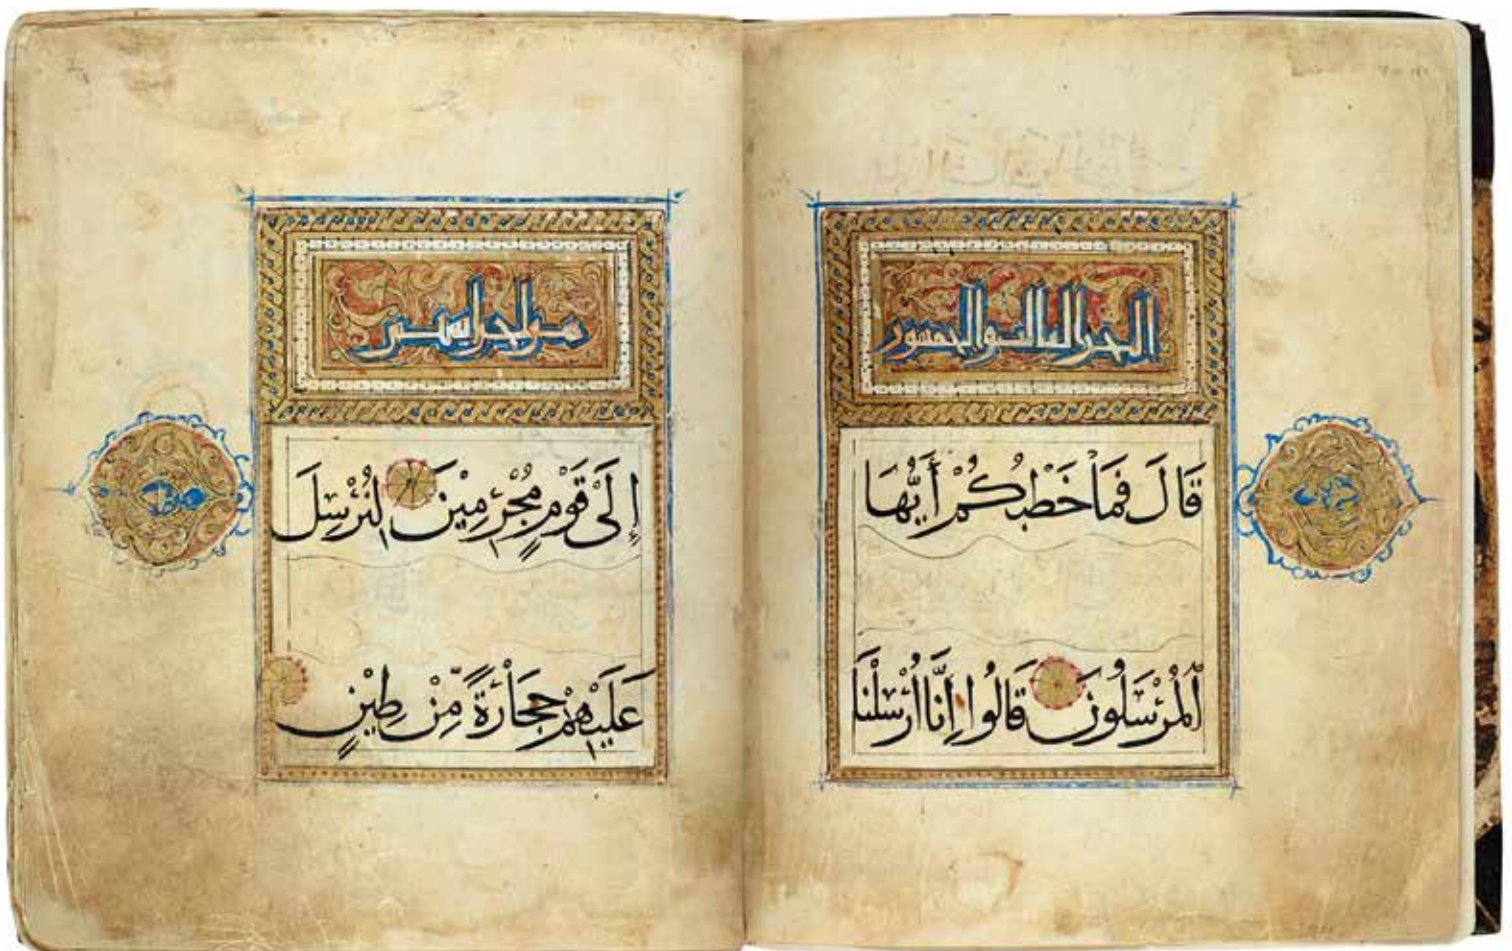 الجز الثالث والخمسون
قَالَ فَمَا خَطْبُكُمْ أَيُّهَا
ٱلْمُرْسَلُونَ قَالُوا إِنَّا أُرْسِلْنَا
من اجزا ستين
إِلَىٰ قَوْمٍ مُجْرِمِيْنَ لِنُرْسِلَ
عَلَيْهِمْ حِجَارَةً مِّنْ طِيْنٍ